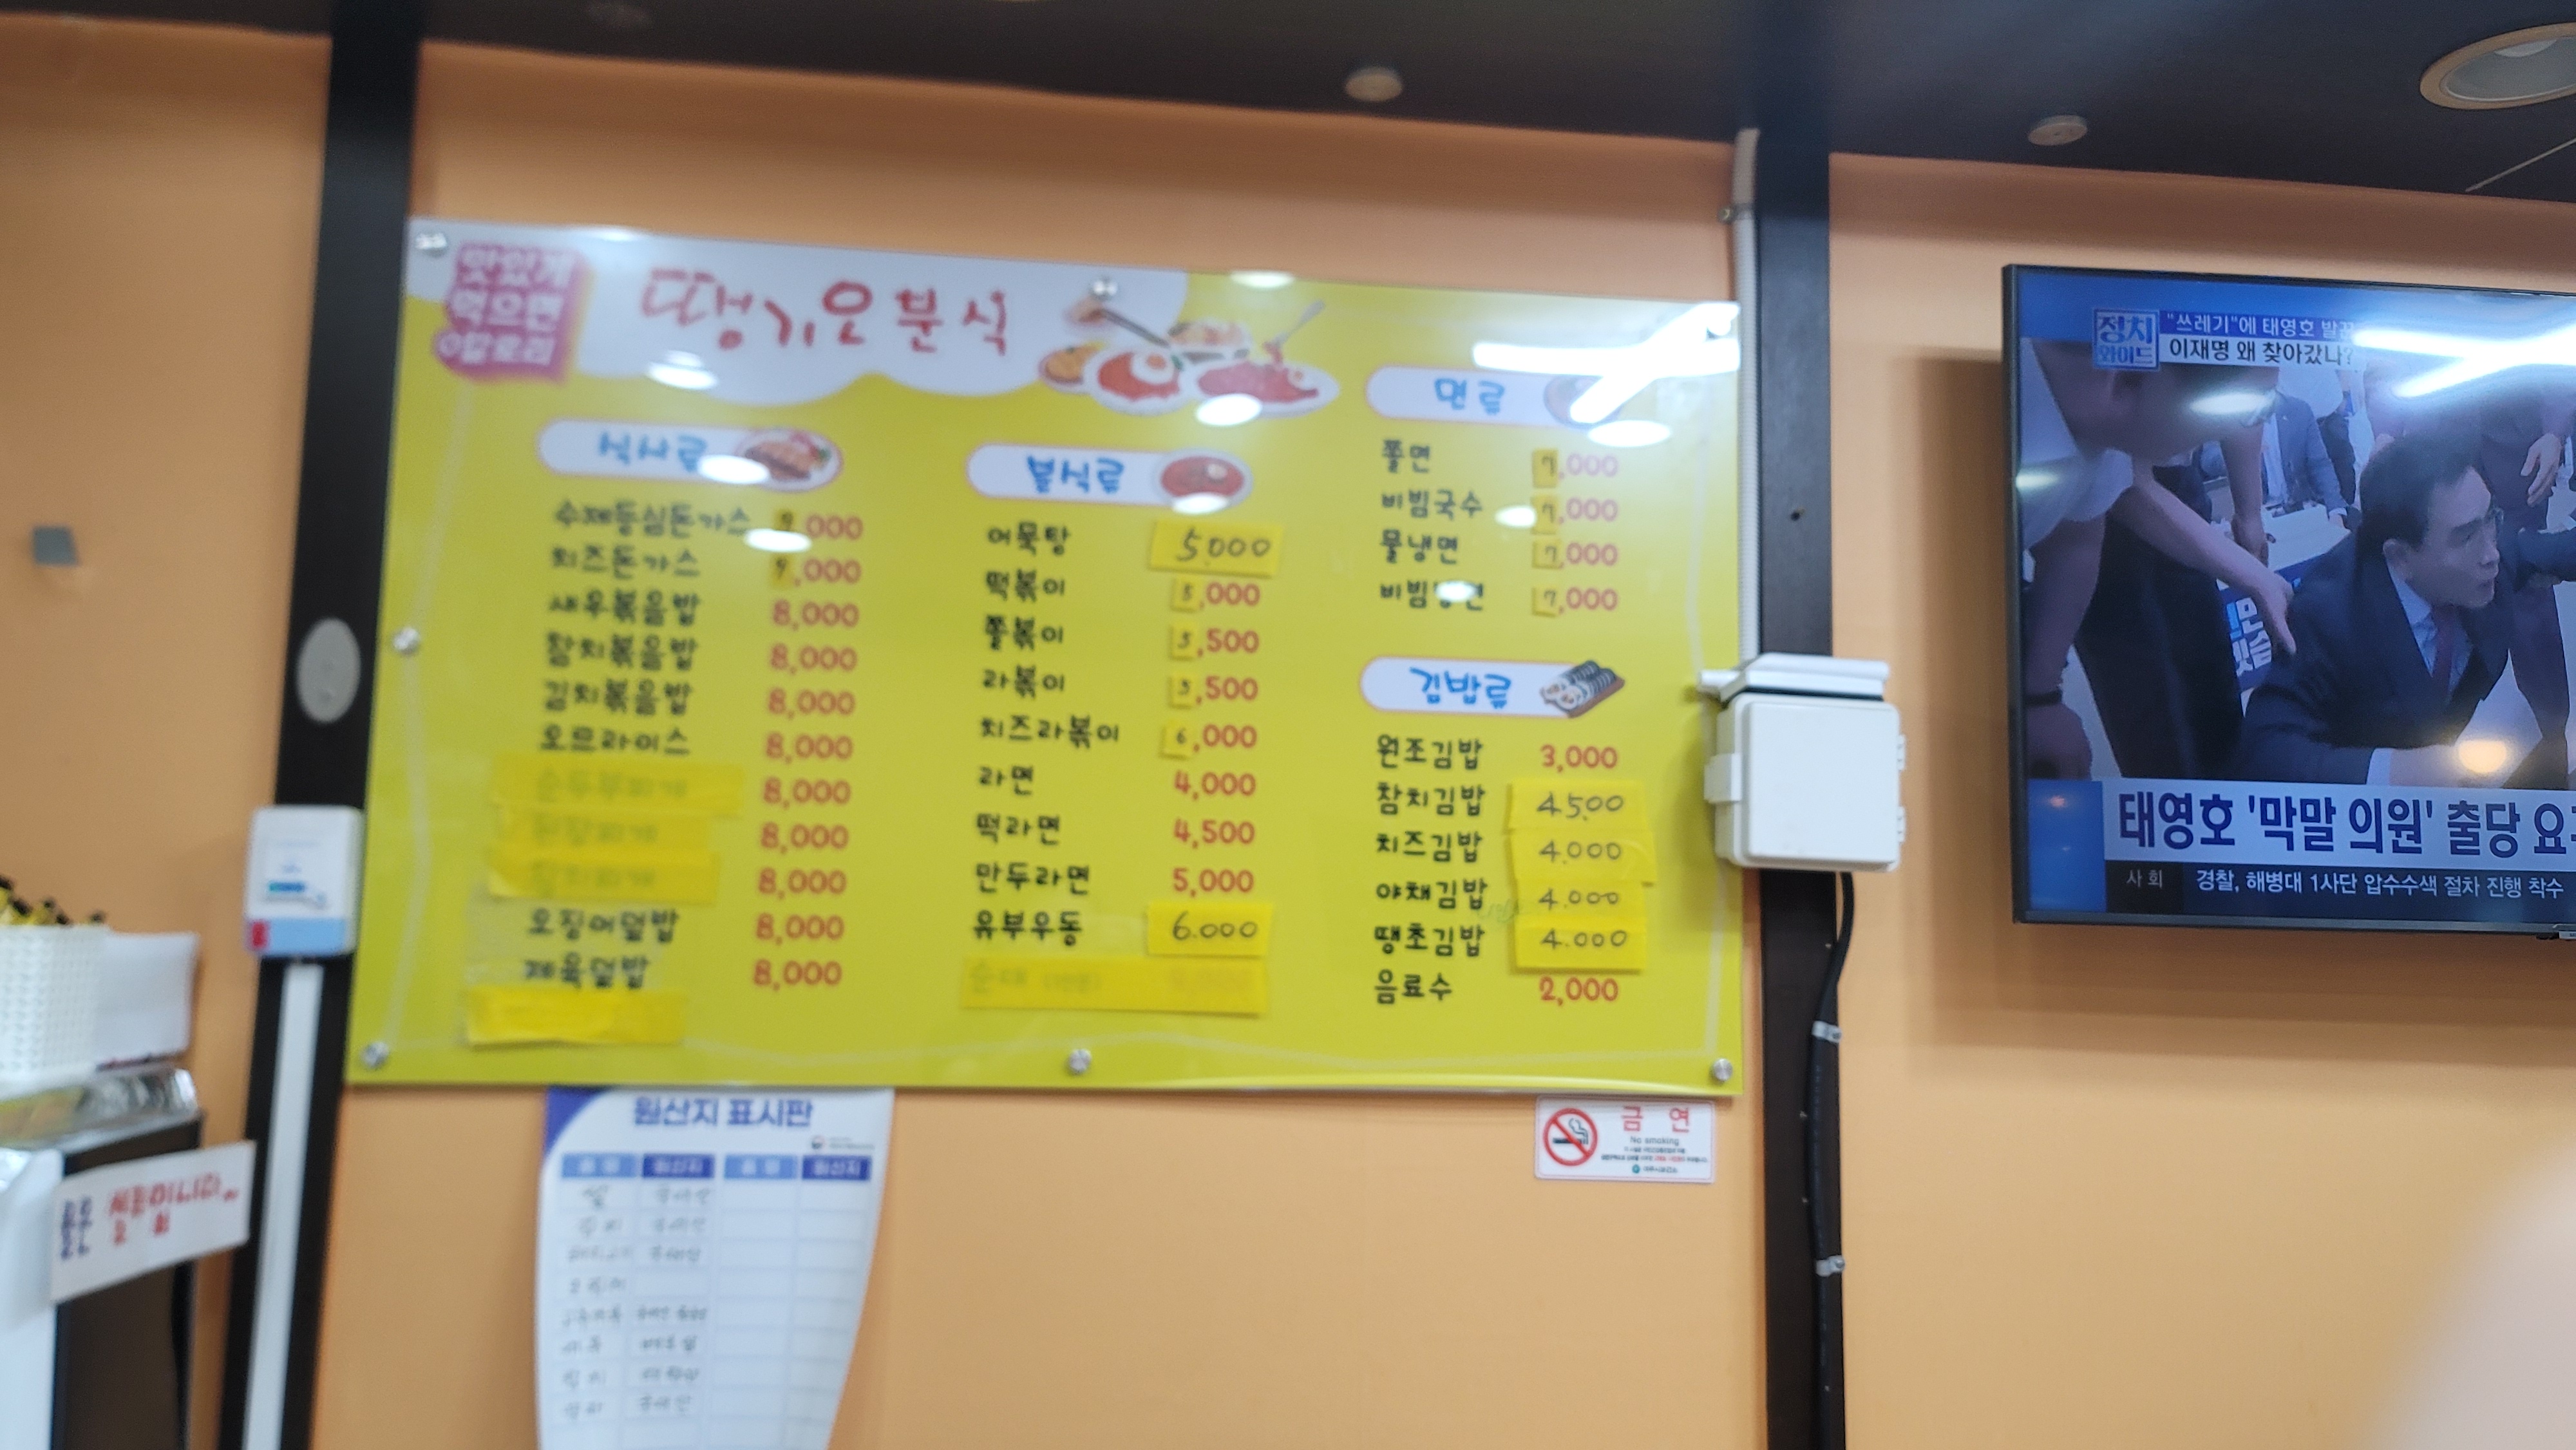 맛있게
먹으면
0칼로리
땡기오분식
식사류
수제등심돈가스 9,000
치즈돈가스 9,000
새우볶음밥 8,000
참치볶음밥 8,000
김치볶음밥 8,000
오므라이스 8,000
순두부찌개 8,000
8,000
8,000
오징어덮밥 8,000
제육덮밥 8,000
분식류
어묵탕 5,000
떡볶이 5,000
쫄볶이 5,500
라볶이 5,500
치즈라볶이 6,000
라면 4,000
떡라면 4,500
만두라면 5,000
유부우동 6.000
면류
쫄면 7,000
비빔국수 7,000
물냉면 7,000
비빔냉면 7,000
김밥류
원조김밥 3,000
참치김밥 4,500
치즈김밥 4.000
야채김밥 4.000
땡초김밥 4.000
음료수 2,000
정치
와이드
"쓰레기"에 태영호 발끈
이재명 왜 찾아갔나?
태영호 '막말 의원' 출당 요
사회 경찰, 해병대 1사단 압수수색 절차 진행 착수
원산지 표시판
품명 원산지 품명 원산지
쌀 국내산
금연
No smoking
물은 셀프입니다~